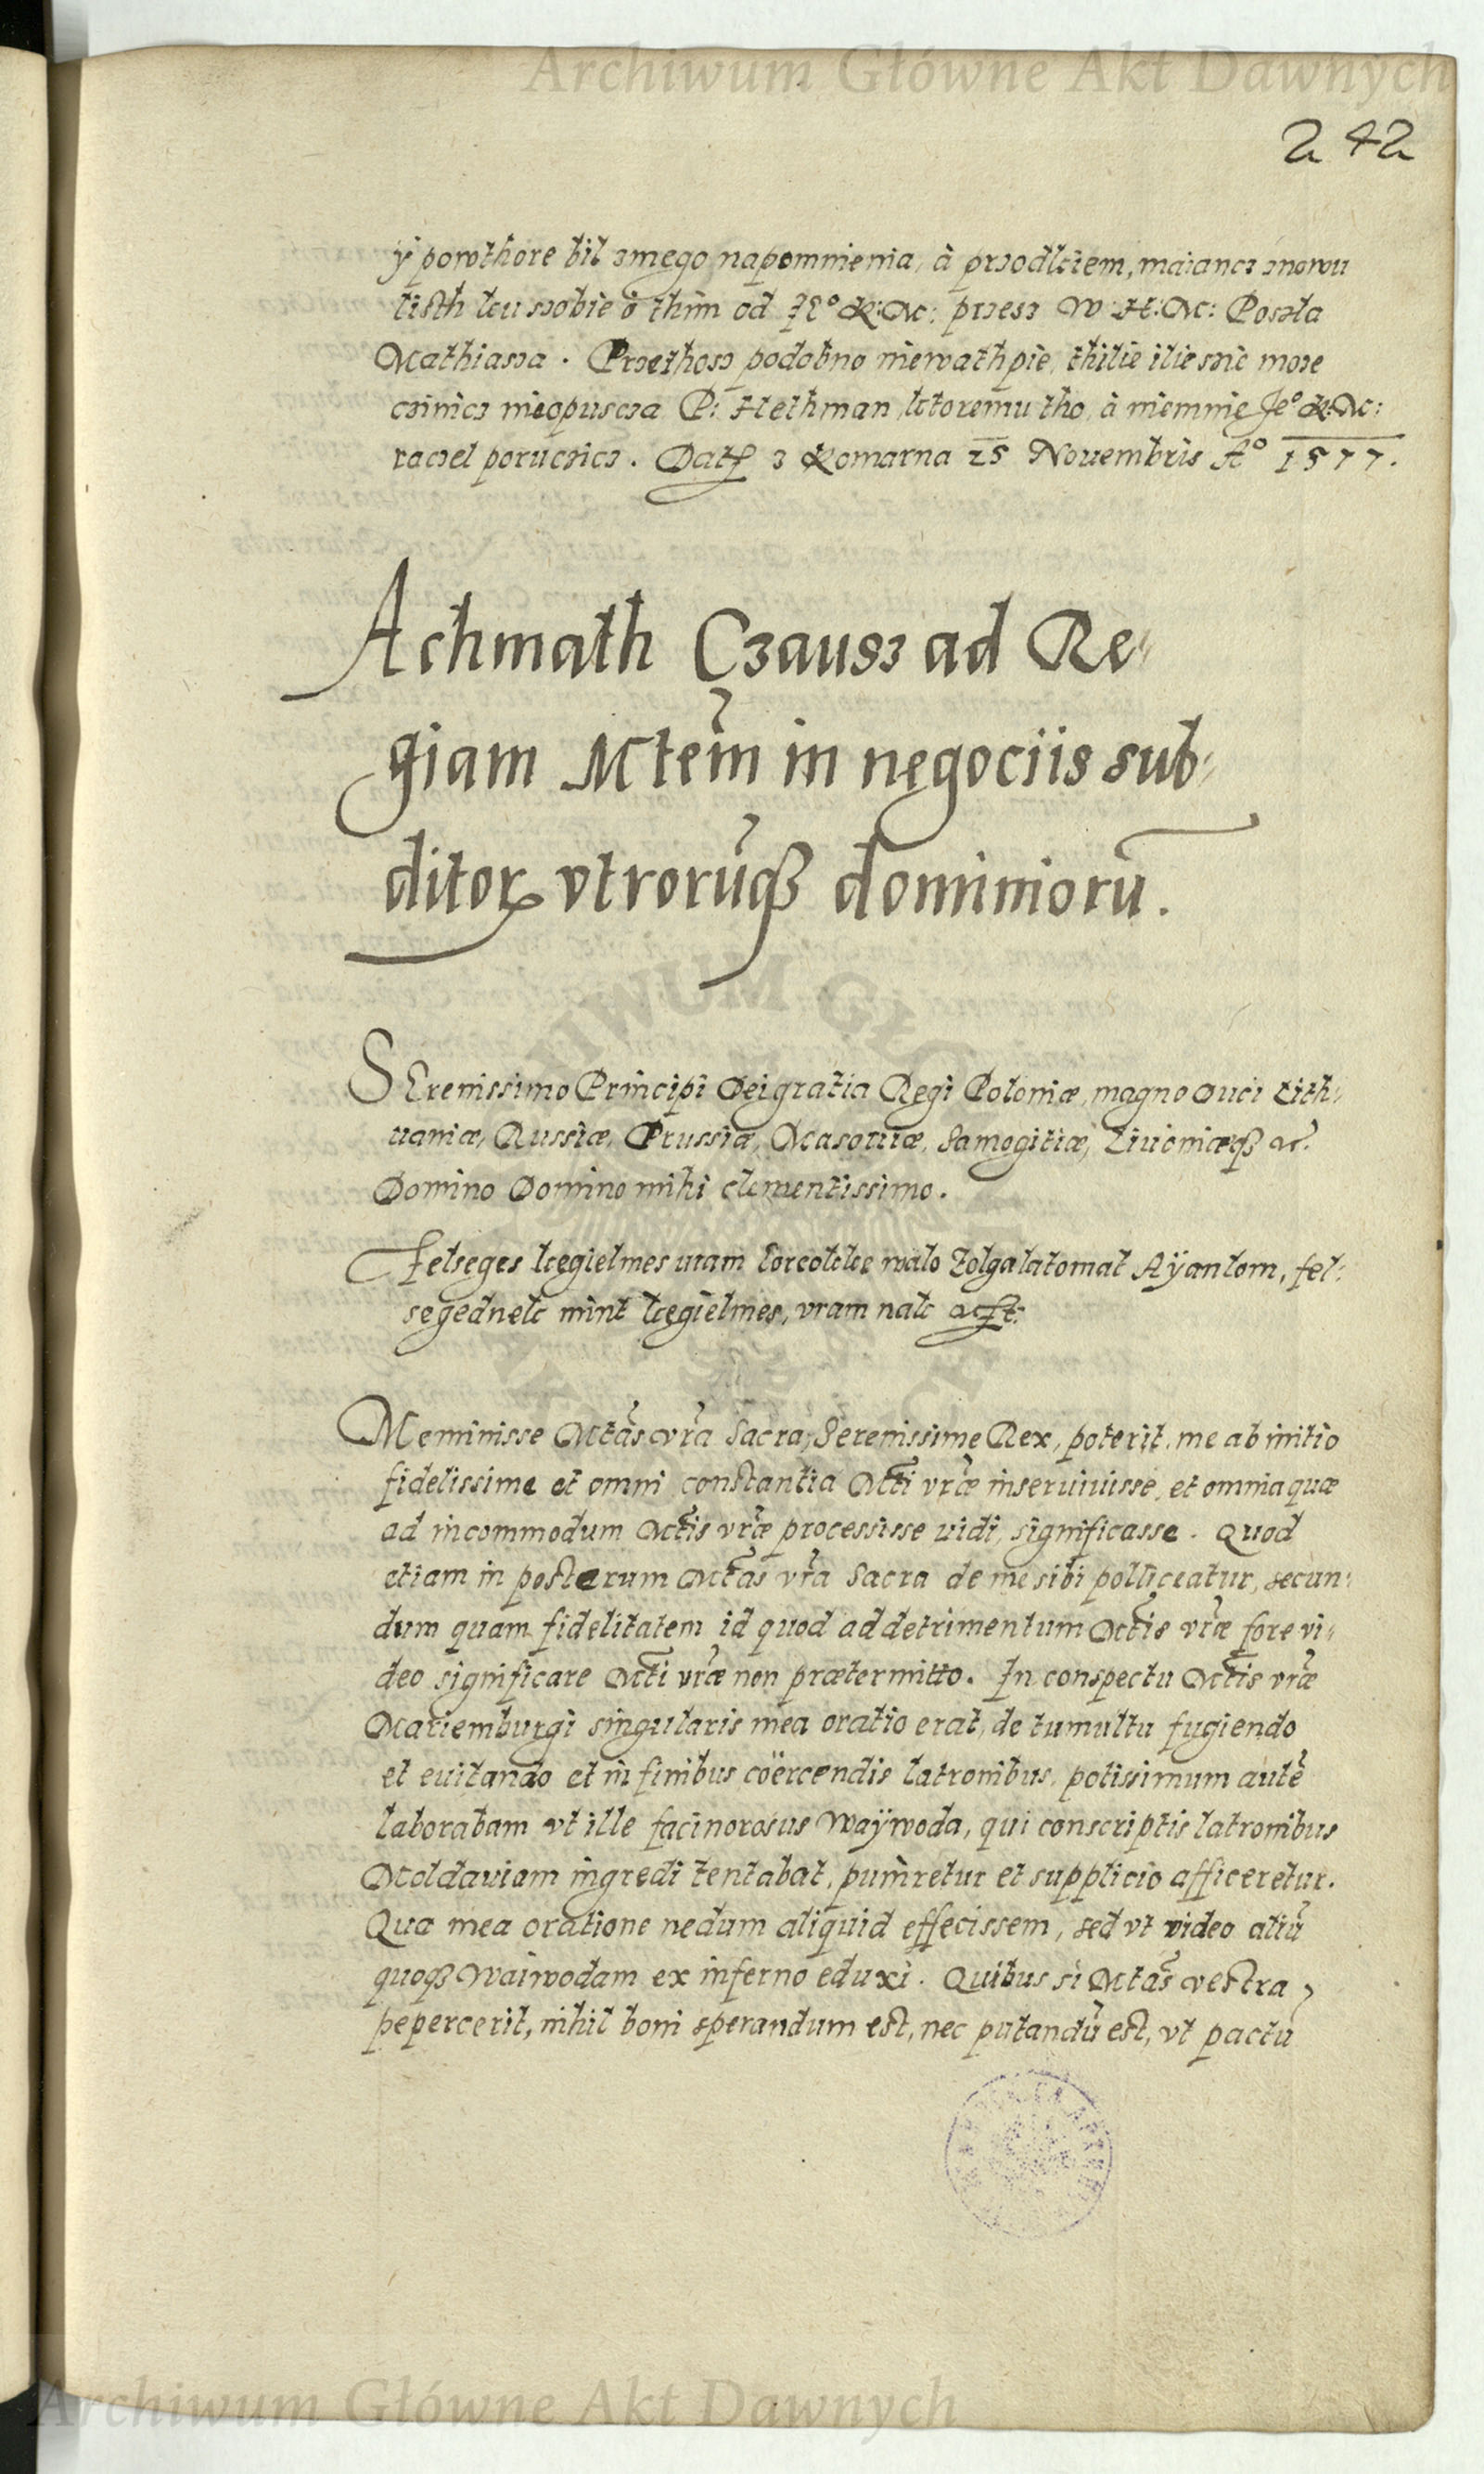 Archiwum Główne Akt Dawnych
242
ÿ powthore bil zmego napomnienia, à przodkiem, maiancz znowu
listh ku szobie o thim od Je° K:Mc: przesz W: H:Mc: Poszla
Mathiasza. Przethosz podobno niewathpie, thilie ilie szic može
czinicz nieopuscza P: Hethman, ktoremu tho, à niemnie Je° K:Mc:
raczel poruczicz. Dat. z Komarna 25 Nouembris A° 1577.
Achmath Czausz ad Re-
giam Mtem in negociis sub-
ditor. vtrorūq3 dominiorū.
SErenissimo Principi Dei gratia Regi Poloniæ, magno Duci Lith-
uaniæ, Russiæ, Prussiæ, Masouiæ, Samogitiæ, Liuoniæq3 etc.
Domino Domino mihi clementissimo.
Felseges kegielmes uram koreokke walo Zolgalatomat Aÿanlom, fel-
segednek mint kegielmes, vram nak etc.
Meminisse Mtas vra Sacra, Serenissime Rex, poterit, me ab initio
fidelissime et omni constantia Mti vræ inseruiuisse, et omnia quæ
ad incommodum Mtis vræ processisse uidi, significasse. Quod
etiam in posterum Mtas vra Sacra de me sibi polliceatur, secun-
dum quam fidelitatem id quod ad detrimentum Mtis vræ fore vi-
deo significare Mti vræ non prætermitto. In conspectu Mtis vræ
Mariemburgi singularis mea oratio erat, de tumultu fugiendo
et euitando et in finibus coërcendis latronibus, potissimum autē
laborabam vt ille facinorosus Waÿwoda, qui conscriptis latronibus
Moldauiam ingredi tentabat, puniretur et supplicio afficeretur.
Qua mea oratione nedum aliquid effecissem, sed vt video aliū
quoq3 Waiwodam ex inferno eduxi. Quibus si Mtas vestra
pepercerit, nihil boni sperandum est, nec putandū est, vt pactu
Archiwum Główne Akt Dawnych